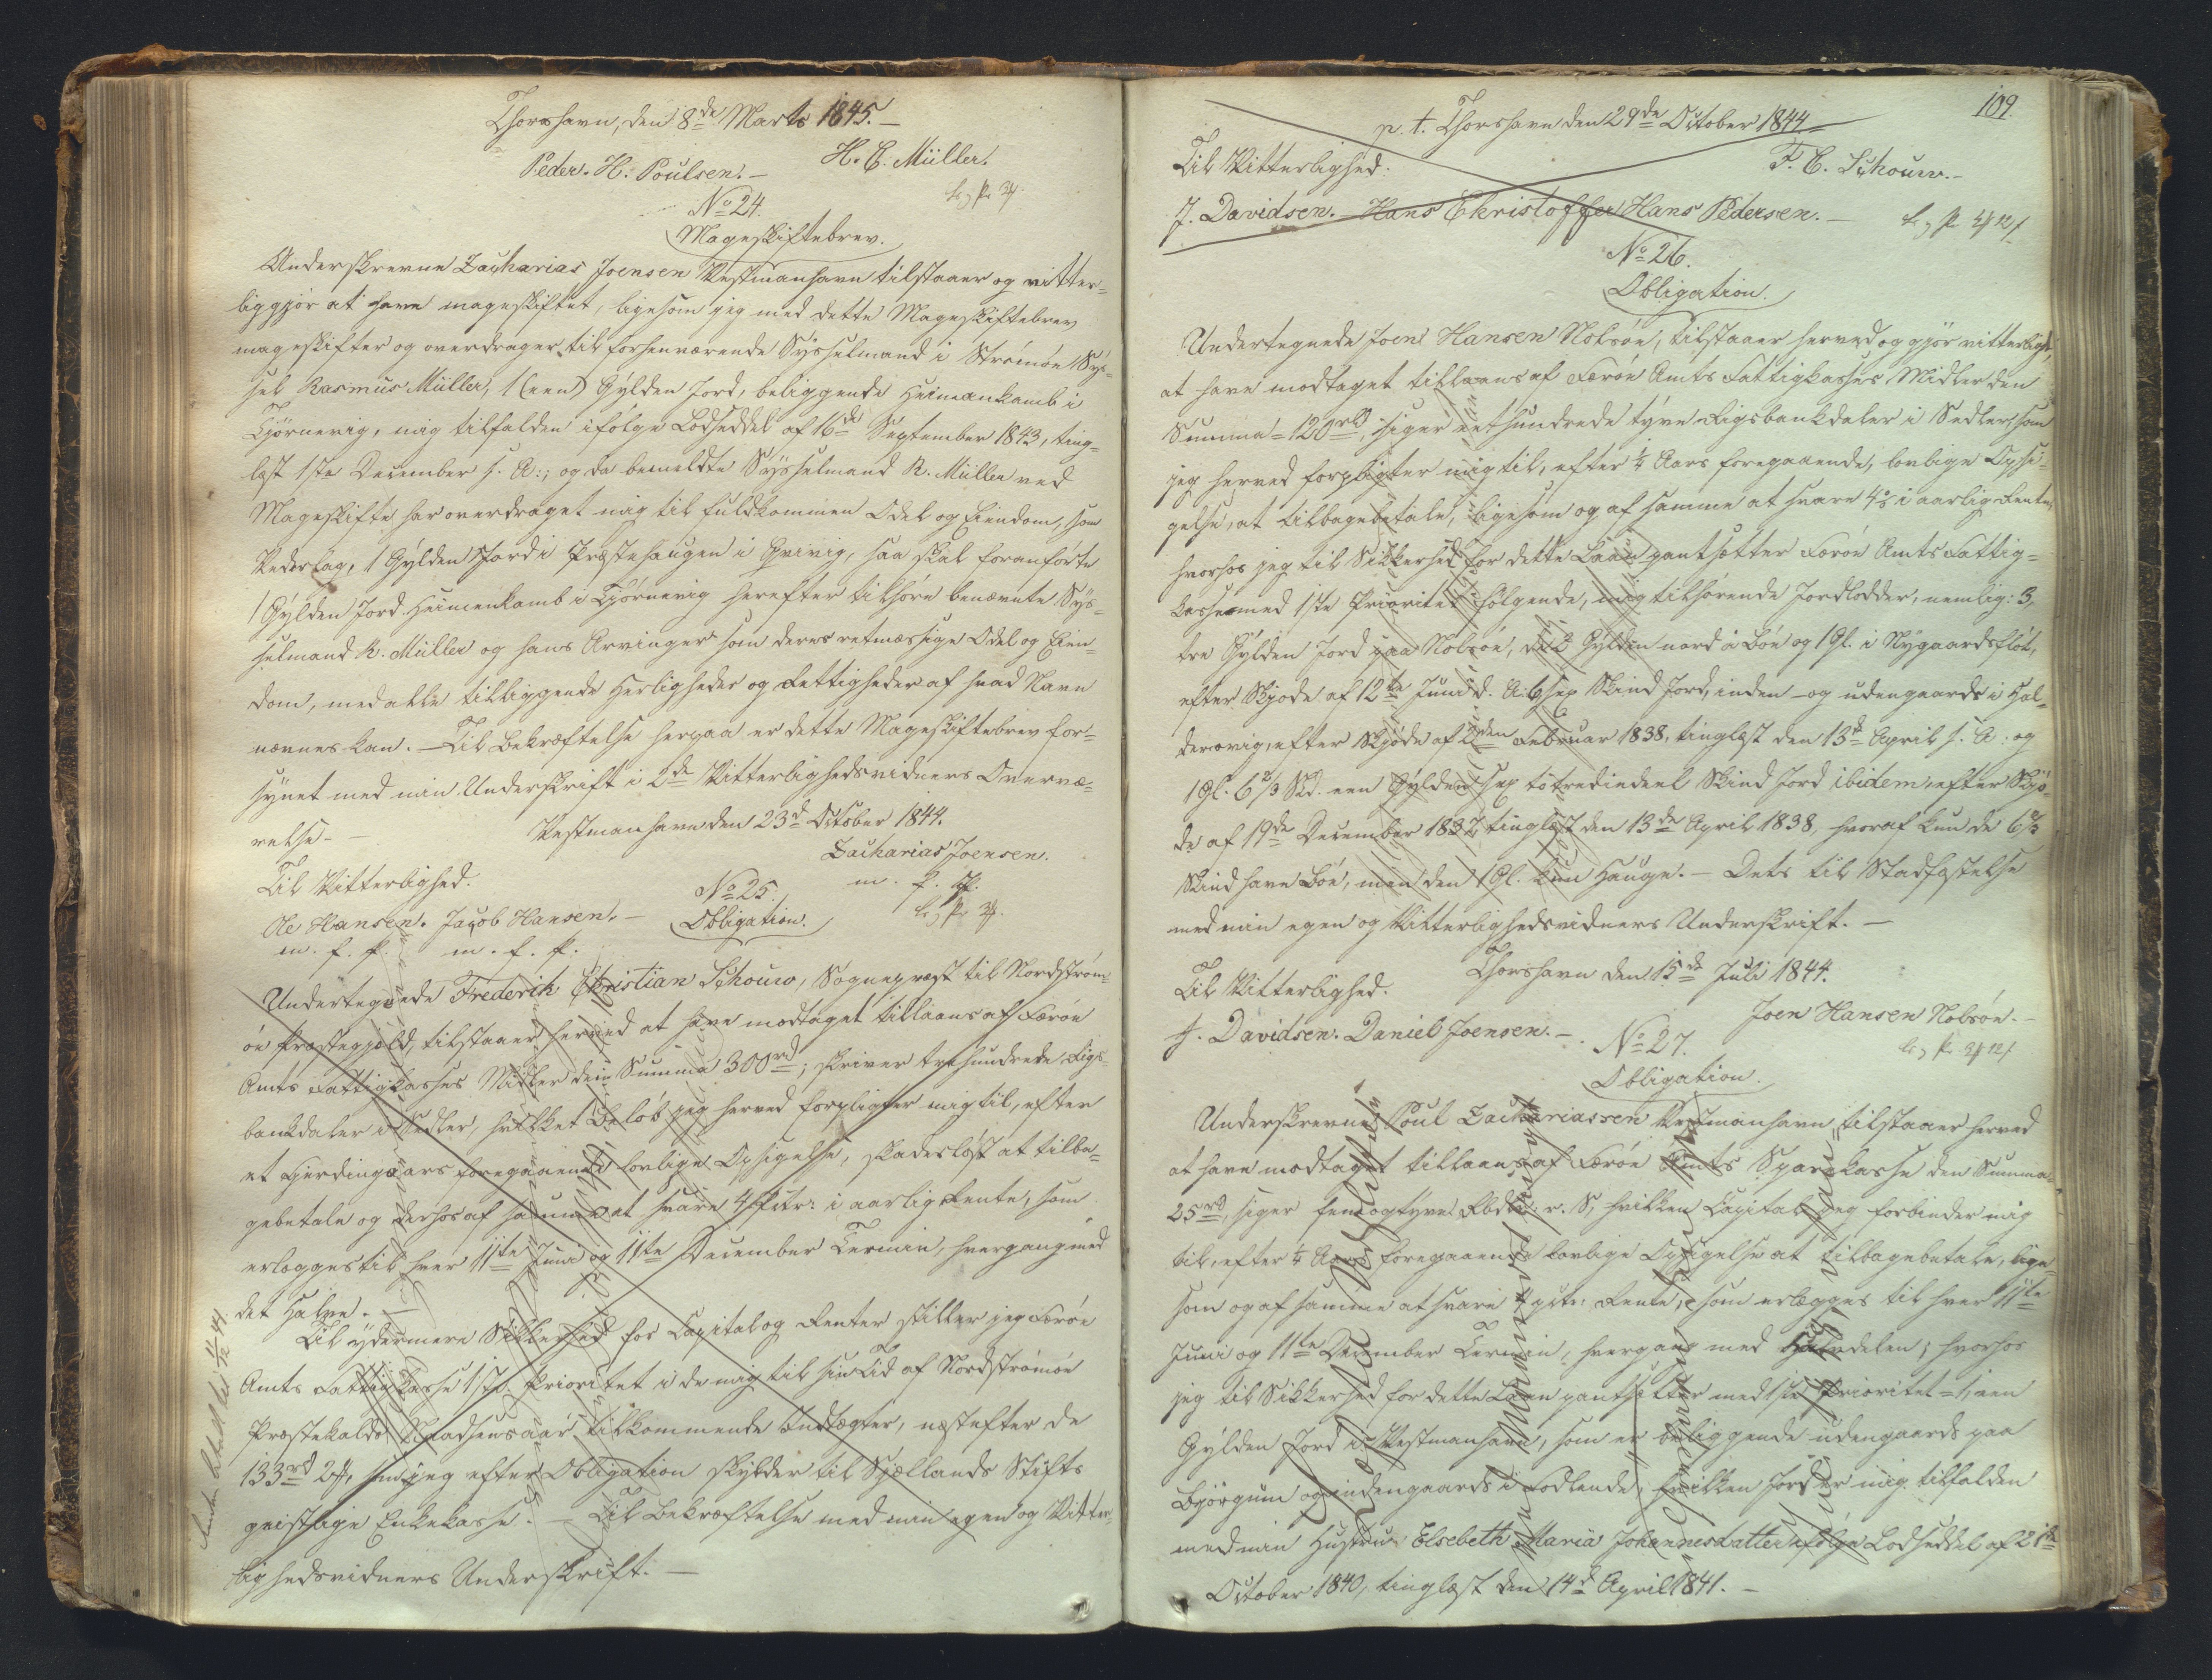 Thorshavn, den 8de Marts 1845. –
H. C. Müller.
Peder. H: Poulsen. –
No 24.
Mageskiftebrev.
Underskrevne Zacharias Joensen Vestmanhavn tilstaaer og vitter-
liggjør at have mageskiftet, ligesom jeg med dette Mageskiftebrev
mageskifter og overdrager til forhenværende Sysselmand i Strømøe Sys-
sel Rasmus Müller, 1 (een) Gylden Jord, beliggende Heimankamb i
Tjørnevig, mig tilfalden ifølge Lodseddel af 16de September 1843, ting-
læst 1ste December s. A:; og da bemeldte Sysselmand R. Müller ved
Mageskifte har overdraget mig til fuldkommen Odel og Eiendom, som
Vederlag, 1 Gylden Jord i Præstehaugen i Qvivig, saa skal foranførte
1 Gylden Jord Heimenkamb i Tjørnevig herefter tilhøre benævnte Sys-
selmand R. Müller og hans Arvinger som deres retmæssige Odel og Eien-
dom, med alle tilliggende Herligheder og Rettigheder af hvad Navn
nævnes kan. – Til Bekræftelse herpaa er dette Mageskiftebrev for-
synet med min Underskrift i 2de Vitterlighedsvidners Overvæ-
relse. – Vestmanhavn den 23de October 1844.
Zacharias Joensen.
Til Vitterlighed. m. f. P.
Ole Hansen. Jacob Hansen. –
m. f. P. m. f. P.
No 25.
Obligation.
Undertegnede Frederik Christian Schouw, Sognepræst til Nordstrøm-
øe Præstegjeld, tilstaaer herved at have modtaget tillaans af Færøe
Amts Fattigkasses Midler den Summa 300rd; skriver trehundrede Rigs-
bankdaler i Sedler, hvilket Beløb jeg herved forpligter mig til, efter
et Fjerdingaars foregaaende lovlige Opsigelse, skadesløst at tilba-
gebetale og derhos af samme at svare 4 Pctr: i aarlig Rente, som
erlægges til hver 11te Juni og 11te December Termin, hvergang med
det Halve. –
Til ydermere Sikkerhed for Capital og Renter stiller jeg Færøe
Amts Fattigkasse 1ste Prioritet i de mig til sin Tid af Nordstrømøe
Præstekalds Naadsensaar tilkommende Indtægter, næstefter de
133rd 2#, som jeg efter Obligation skylder til Sjællands Stifts
geistlige Enkekasse. – Til Bekræftelse med min egen og Vitter-
lighedsvidners Underskrift. –
109.
p. t. Thorshavn den 29de October 1844
Til Vitterlighed: F. C. Schouw. –
J. Davidsen. Hans Christoffer Hans Pedersen. –
No 26.
Obligation.
Undertegnede Joen Hansen Nolsøe, tilstaaer herved og gjør vitterligt,
at have modtaget tillaans af Færøe Amts Fattigkasses Midler den
Summa = 120rd, siger eethundrede tyve Rigsbankdaler i Sedler, som
jeg herved forpligter mig til, efter ¼ Aars foregaaende, lovlige Opsi-
gelse, at tilbagebetale, ligesom og af samme at svare 4% i aarlig Rente,
hvorhos jeg til Sikkerhed for dette Laan pantsætter Færøe Amts Fattig-
kasse med 1ste Prioritet følgende, mig tilhørende Jordlodder, nemlig: 3,
tre Gylden Jord paa Nolsøe, de 2 Gylden nord i Bøe og 1 Gl. i Nygaardsfløt,
efter Skjøde af 12te Juni d. A. 6 sex Skind Jord, inden- og udengaards i Hal-
dersvig, efter Skjøde af 2den Februar 1838, tinglæst den 13de April s. A: og
1 Gl. 6⅔ Skd. een Gylden sex totrediedeel Skind Jord ibidem, efter Skjø-
de af 19de December 1837, tinglæst den 13de April 1838, hvoraf kun de 6⅔
Skind have Bøe, men den 1 Gl. kun Hauge. – Dets til Stadfæstelse
med min egen og Vitterlighedsvidners Underskrift. –
Thorshavn den 15de Juli 1844.
Til Vitterlighed. Joen Hansen Nolsøe. –
J. Davidsen. Daniel Joensen. –
No 27.
Obligation.
Underskrevne Poul Zachariassen Vestmanhavn, tilstaaer herved
at have modtaget tillaans af Færøe Amts Sparekasse den Summa
25rd, siger femogtyve Rbdlr. r. S, hvilken Capital jeg forbinder mig
til, efter ¼ Aars foregaaende lovlige Opsigelse at tilbagebetale, lige-
som og af samme at svare 4 pctr: Rente, som erlægges til hver 11te
Juni og 11te December Termin, hvergang med Halvdelen; hvorhos
jeg til Sikkerhed for dette Laan pantsætter med 1ste Prioritet = 1, een
Gylden Jord i Vestmanhavn, som er beliggende udengaards paa
Bjørgum og indengaards i Fodlende, hvilken Jord er mig tilfalden
med min Hustru Elsebeth Maria Johannesdatter ifølge Lodseddel af 21de
October 1840, tinglæst den 14de April 1841. –